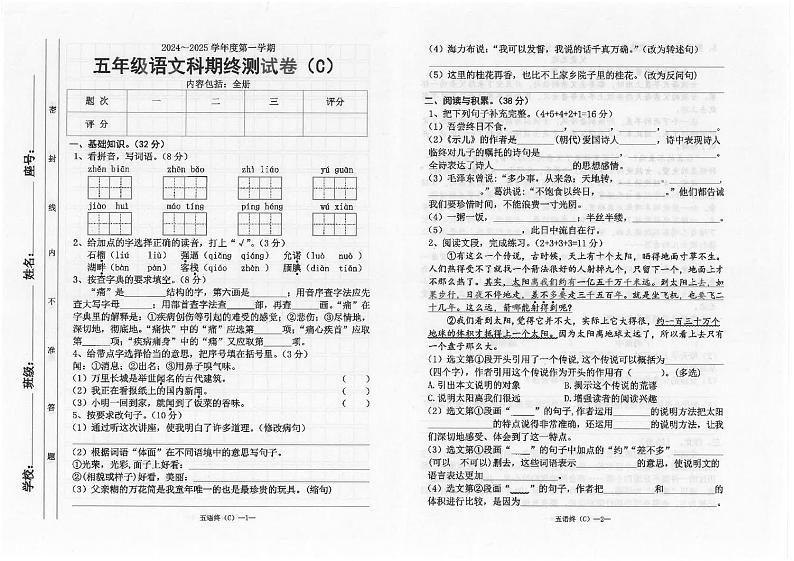 密
封
线
内
不
准
答
题
座号:
姓名:
班级:
学校:
2024～2025 学年度第一学期
五年级语文科期终测试卷（C）
内容包括：全册
题 次 一 二 三 评分
评 分
一、基础知识。（32 分）
1、看拼音，写词语。（8 分）
zhēn biān zhēn bǎo zhì liáo yú guàn
jiào huì máo tíng píng héng wú xiàn
2、给加点的字选择正确的读音，打上“√”。（3 分）
石榴（liú liù） 强逼（qiǎng qiáng） 允诺（luò nuò）
湖畔（bàn pàn） 客栈（qiáo zhàn） 腼腆（diǎn tiǎn）
3、按查字典的要求填空。（8 分）
“痛”是________结构的字，第六画是______；用音序查字法应先
查大写字母______；用部首查字法，应查______部，再查______画。“痛”在
字典里的解释是：①疾病创伤等引起的难受的感觉；②悲伤；③尽情地，
深切地，彻底地。“痛快”中的“痛”应选第______项；“痛心疾首”应取
第______项；“疾病痛身”中的“痛”又应取第______项。
4、给带点字选择恰当的意思，把序号填在括号里。（3 分）
闻：①消息；②出名；③用鼻子嗅气味。
（1）万里长城是举世闻名的古代建筑。 （ ）
（2）我正在看报纸上的国内新闻。 （ ）
（3）小明一回到家，就闻到了饭菜的香味。 （ ）
5、按要求改句子。（10 分）
（1）通过听这次讲座，使我明白了许多道理。（修改病句）
（2）根据词语“体面”在不同语境中的意思写句子。
①光荣，光彩，面子上好看：
②(相貌或样子)好看，美丽：
（3）父亲糊的万花筒是我童年唯一的也是最珍贵的玩具。（缩句）
五语终（C）—1—
（4）海力布说：“我可以发誓，我说的话千真万确。”（改为转述句）
（5）这里的桂花再香，也比不上家乡院子里的桂花。（改为反问句）
二、阅读与积累。（38 分）
1、把下列句子补充完整。（4+5+4+2+1=16 分）
（1）吾尝终日不食，________，________，________，________。
（2）《示儿》的作者是______（朝代）爱国诗人________，诗中表现诗人
临终对儿子的嘱托的诗句是____________，____________。
全诗表达了诗人____________的思想感情。
（3）毛泽东曾说：“多少事，从来急；天地转，________。________，
________。”葛洪说：“不饱食以终日，____________。”他们都告诫
我们要珍惜时间，不能浪费一寸光阴。
（4）一粥一饭，____________；半丝半缕，____________。
（5）____________，此日中流自在行。
2、阅读文段，完成练习。（2+3+3+3=11 分）
①有这么一个传说，古时候，天上有十个太阳，晒得地面寸草不生。
人们热得受不了就找一个箭法很好的人射掉九个，只留下一个，地面上才
不那么热了。其实，太阳离我们约有一亿五千万千米远。到太阳上去，如
果步行，日夜不停地走，差不多要走三千五百年。就是坐飞机，也要飞二
十几年。这么远，箭哪能射得到呢？
②我们看到太阳，觉得它并不大，实际上它大得很，约一百三十万个
地球的体积才抵得上一个太阳。因为太阳离地球太远了，所以看上去只有
一个盘子那么大。
（1）选文第①段开头引用了一个传说，这个传说可以概括为________
(四个字)，作者引用这个传说作为开头的作用有（ ）。(多选)
A.引出本文说明的对象 B.揭示这个传说的荒谬
C.说明太阳离我们很远 D.增强读者的阅读兴趣
（2）选文第①段画“____”的句子，作者运用______的说明方法把太阳
________的特点说得非常准确，还运用______的说明方法，让我
们深切地感受、体会到了这一特点。
（3）选文第①段画“____”的句子中加点的“约”“差不多”________
(可以 不可以)删去，这些词语表示________的意思，使说明文的
语言表达更加________。
（4）选文第②段画“____”的句子，作者把________和________的
体积进行比较，是因为____________________。
五语终（C）—2—